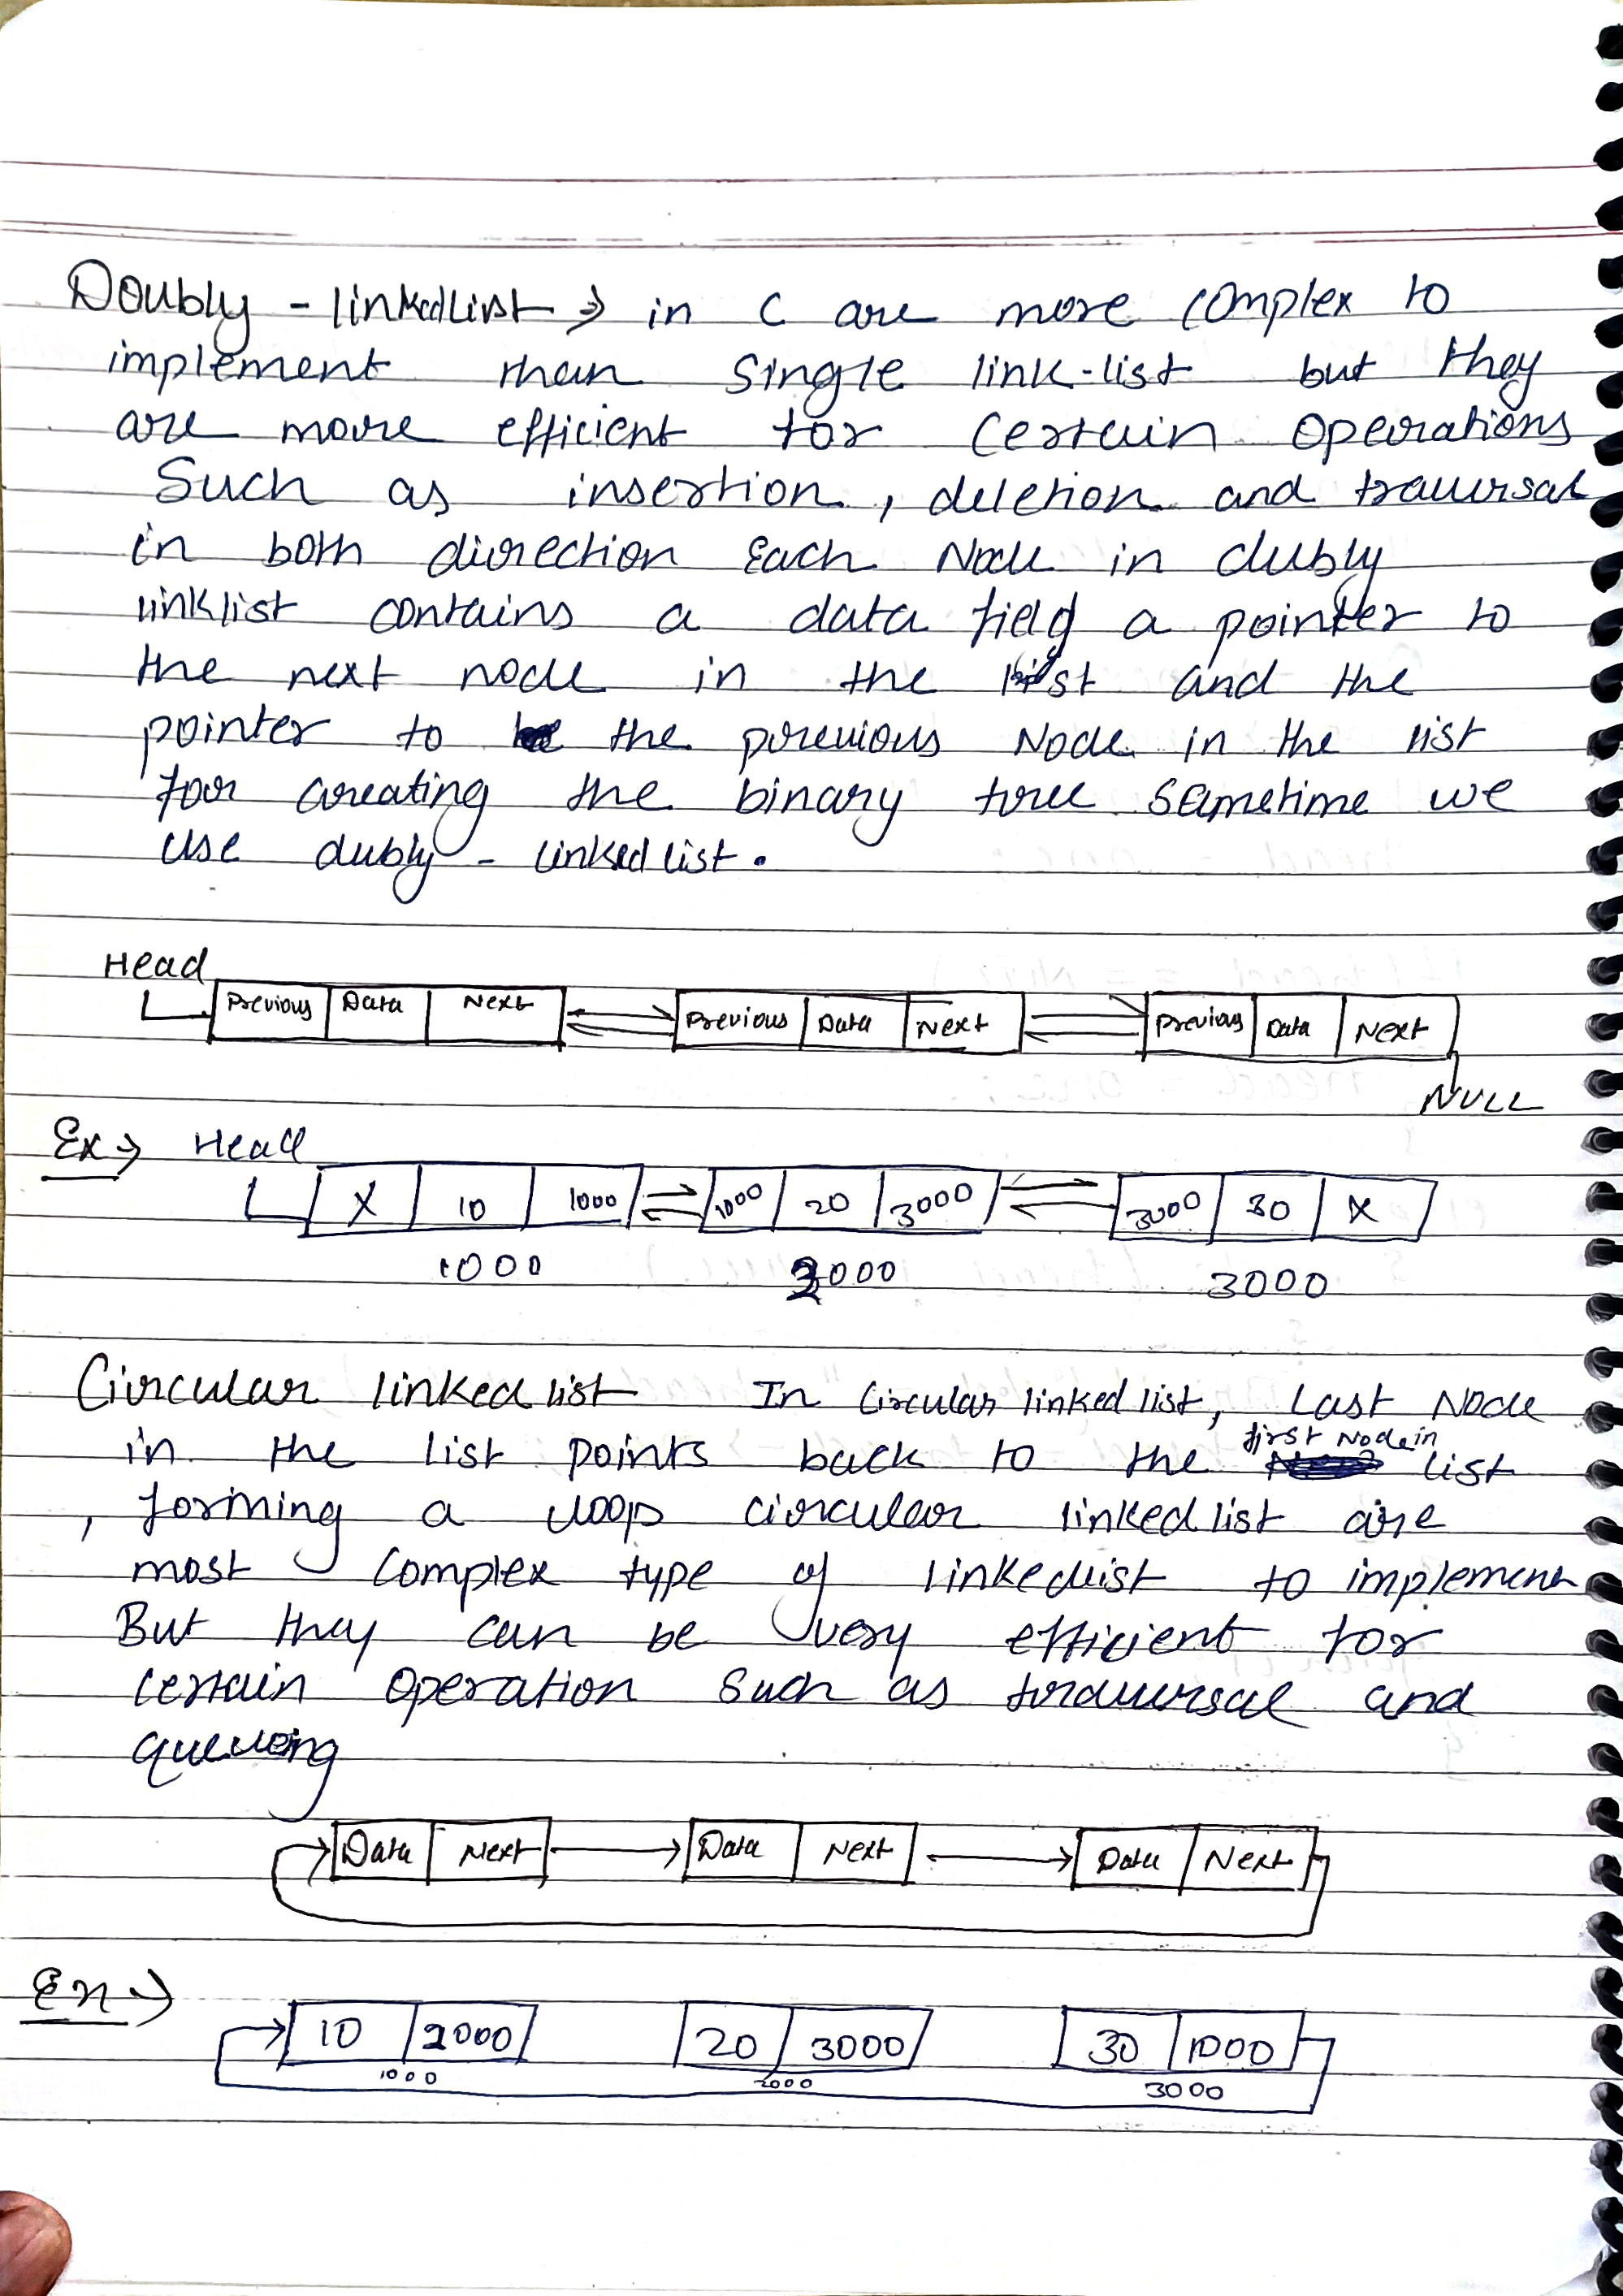 Doubly - linkedlist → in C are more complex to
implement than single link-list but they
are more efficient for certain operations
Such as insertion, deletion and traversal
in both direction Each Node in dubly
linklist contains a data field a pointer to
the next node in the list and the
pointer to the previous Node in the list
for creating the binary tree sometime we
use dubly - linked list.
Head
Previous Data Next Previous Data Next Previous Data Next
NULL
Ex→ Head
X 10 1000 1000 20 3000 3000 30 X
1000 2000 3000
Circular linked list In Circular linked list, Last Node
in the list points back to the first Node in list
, forming a loop circular linked list are
most complex type of linkedlist to implement
But they can be very efficient for
certain operation such as traversal and
queueing
Data Next Data Next Data Next
Ex→
10 2000 20 3000 30 1000
1000 2000 3000